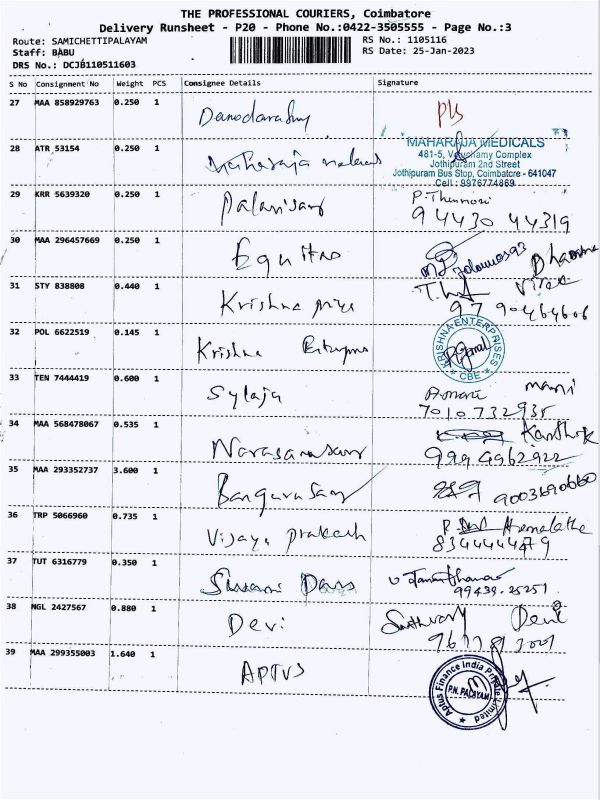 THE PROFESSIONAL COURIERS, Coimbatore
Delivery Runsheet - P20 - Phone No.:0422-3505555 - Page No.:3
Route: SAMICHETTIPALAYAM RS No.: 1105116
Staff: BABU RS Date: 25-Jan-2023
DRS No.: DCJB110511603
S No Consignment No Weight PCS Consignee Details Signature
27 MAA 858929763 0.250 1
28 ATR 53154 0.250 1 Maharaja
MAHARAJA MEDICALS
481-5, Complex
Jothipuram 2nd Street
Jothipuram Bus Stop, Coimbatore - 641047
Cell : 9976774869
29 KRR 5639320 0.250 1 Palanisamy
94430 44319
30 MAA 296457669 0.250 1 Equitas
31 STY 838808 0.440 1 Krishna priya
32 POL 6622519 0.145 1 Krishna
KRISHNA ENTERPRISES
CBE
33 TEN 7444419 0.600 1 Sylaja
mani
7010732935
34 MAA 568478067 0.535 1 Narasamsamy
Karthik
35 MAA 293352737 3.600 1 Bangarusamy
9003690660
36 TRP 5066960 0.735 1 Vijaya prakash
Hemalatha
37 TUT 6316779 0.350 1
99439-25251
38 NGL 2427567 0.880 1 Devi
Devi
39 MAA 299355003 1.640 1 APTUS
Aptus Finance India Private Limited
P.N. PALAYAM